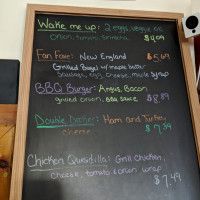 Wake me up: 2 eggs, veggie
onion, tomato, $9.09
Fan Fare: New England $5.69
Grilled Bagel w/ maple butter
Sausage, egg, cheese, maple syrup
BBQ Burger: Angus, Bacon
grilled onion, BBQ sauce $8.89
Double Decker: Ham and Turkey
cheese $7.39
Chicken Quesadilla: Grill Chicken,
cheese, tomato & onion wrap
$7.49